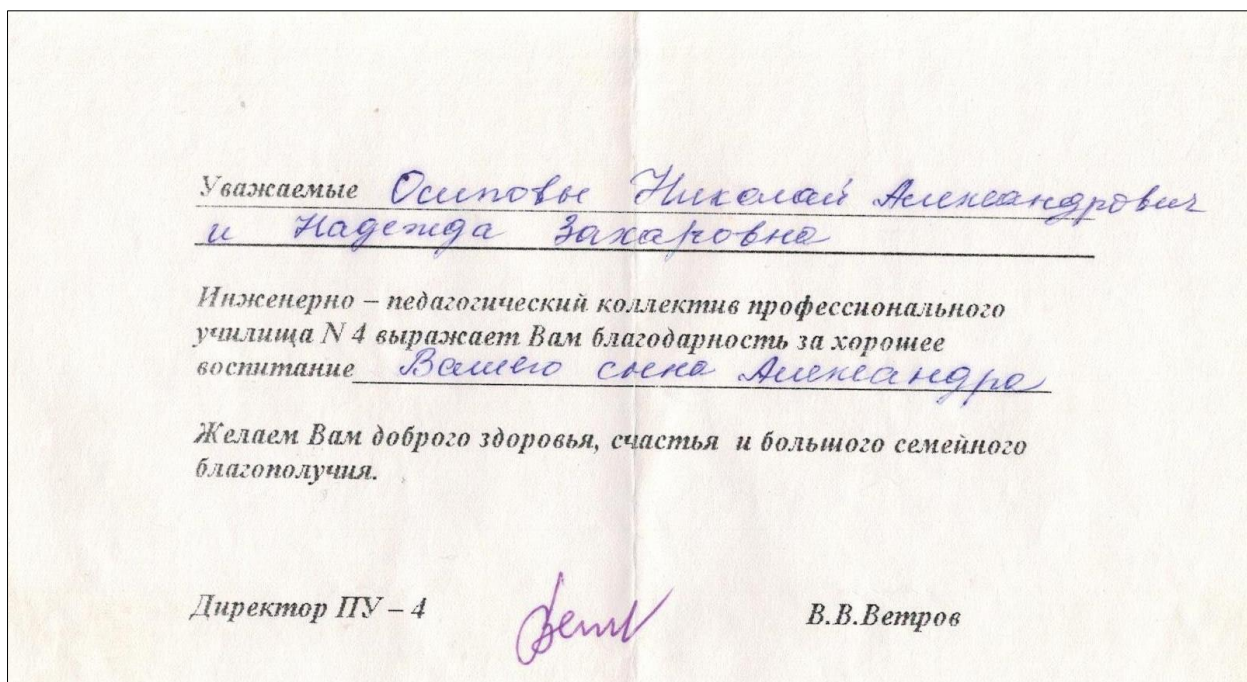 Уважаемые Осиповы Николай Александрович
и Надежда Захаровна
Инженерно – педагогический коллектив профессионального
училища N 4 выражает Вам благодарность за хорошее
воспитание Вашего сына Александра
Желаем Вам доброго здоровья, счастья и большого семейного
благополучия.
Директор ПУ – 4 В.В.Ветров